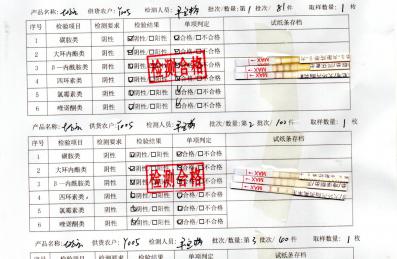 产品名称: 供货农户: Y005 检测人员: 批次/数量: 第1批次/81件 取样数量: 1 枚
序号 检验项目 检测要求 检验结果 单项判定 试纸条存档
1 磺胺类 阴性 ☑阴性/□阳性 ☑合格/□不合格
2 大环内酯类 阴性 ☑阴性/□阳性 ☑合格/□不合格
3 β一内酰胺类 阴性 阳性 合格/□不合格
4 四环素类 阴性 阳性 合格/□不合格
5 氯霉素类 阴性 阴性/□阳性 合格/□不合格
6 喹诺酮类 阴性 ☑阴性/□阳性 ☑合格/□不合格
检测合格
MAX
MAX
产品名称: 供货农户: Y005 检测人员: 批次/数量: 第2批次/102件 取样数量: 1 枚
序号 检验项目 检测要求 检验结果 单项判定 试纸条存档
1 磺胺类 阴性 ☑阴性/□阳性 ☑合格/□不合格
2 大环内酯类 阴性 ☑阴性/□阳性 ☑合格/□不合格
3 β一内酰胺类 阴性 阳性 合格/□不合格
4 四环素类 阴性 阳性 合格/□不合格
5 氯霉素类 阴性 ☑阴性/□阳性 ☑合格/□不合格
6 喹诺酮类 阴性 ☑阴性/□阳性 ☑合格/□不合格
检测合格
MAX
MAX
产品名称: 供货农户: Y005 检测人员: 批次/数量: 第3批次/60件 取样数量: 1 枚
序号 检验项目 检测要求 检验结果 单项判定 试纸条存档
1 磺胺类 阴性 阴性/□阳性 合格/□不合格